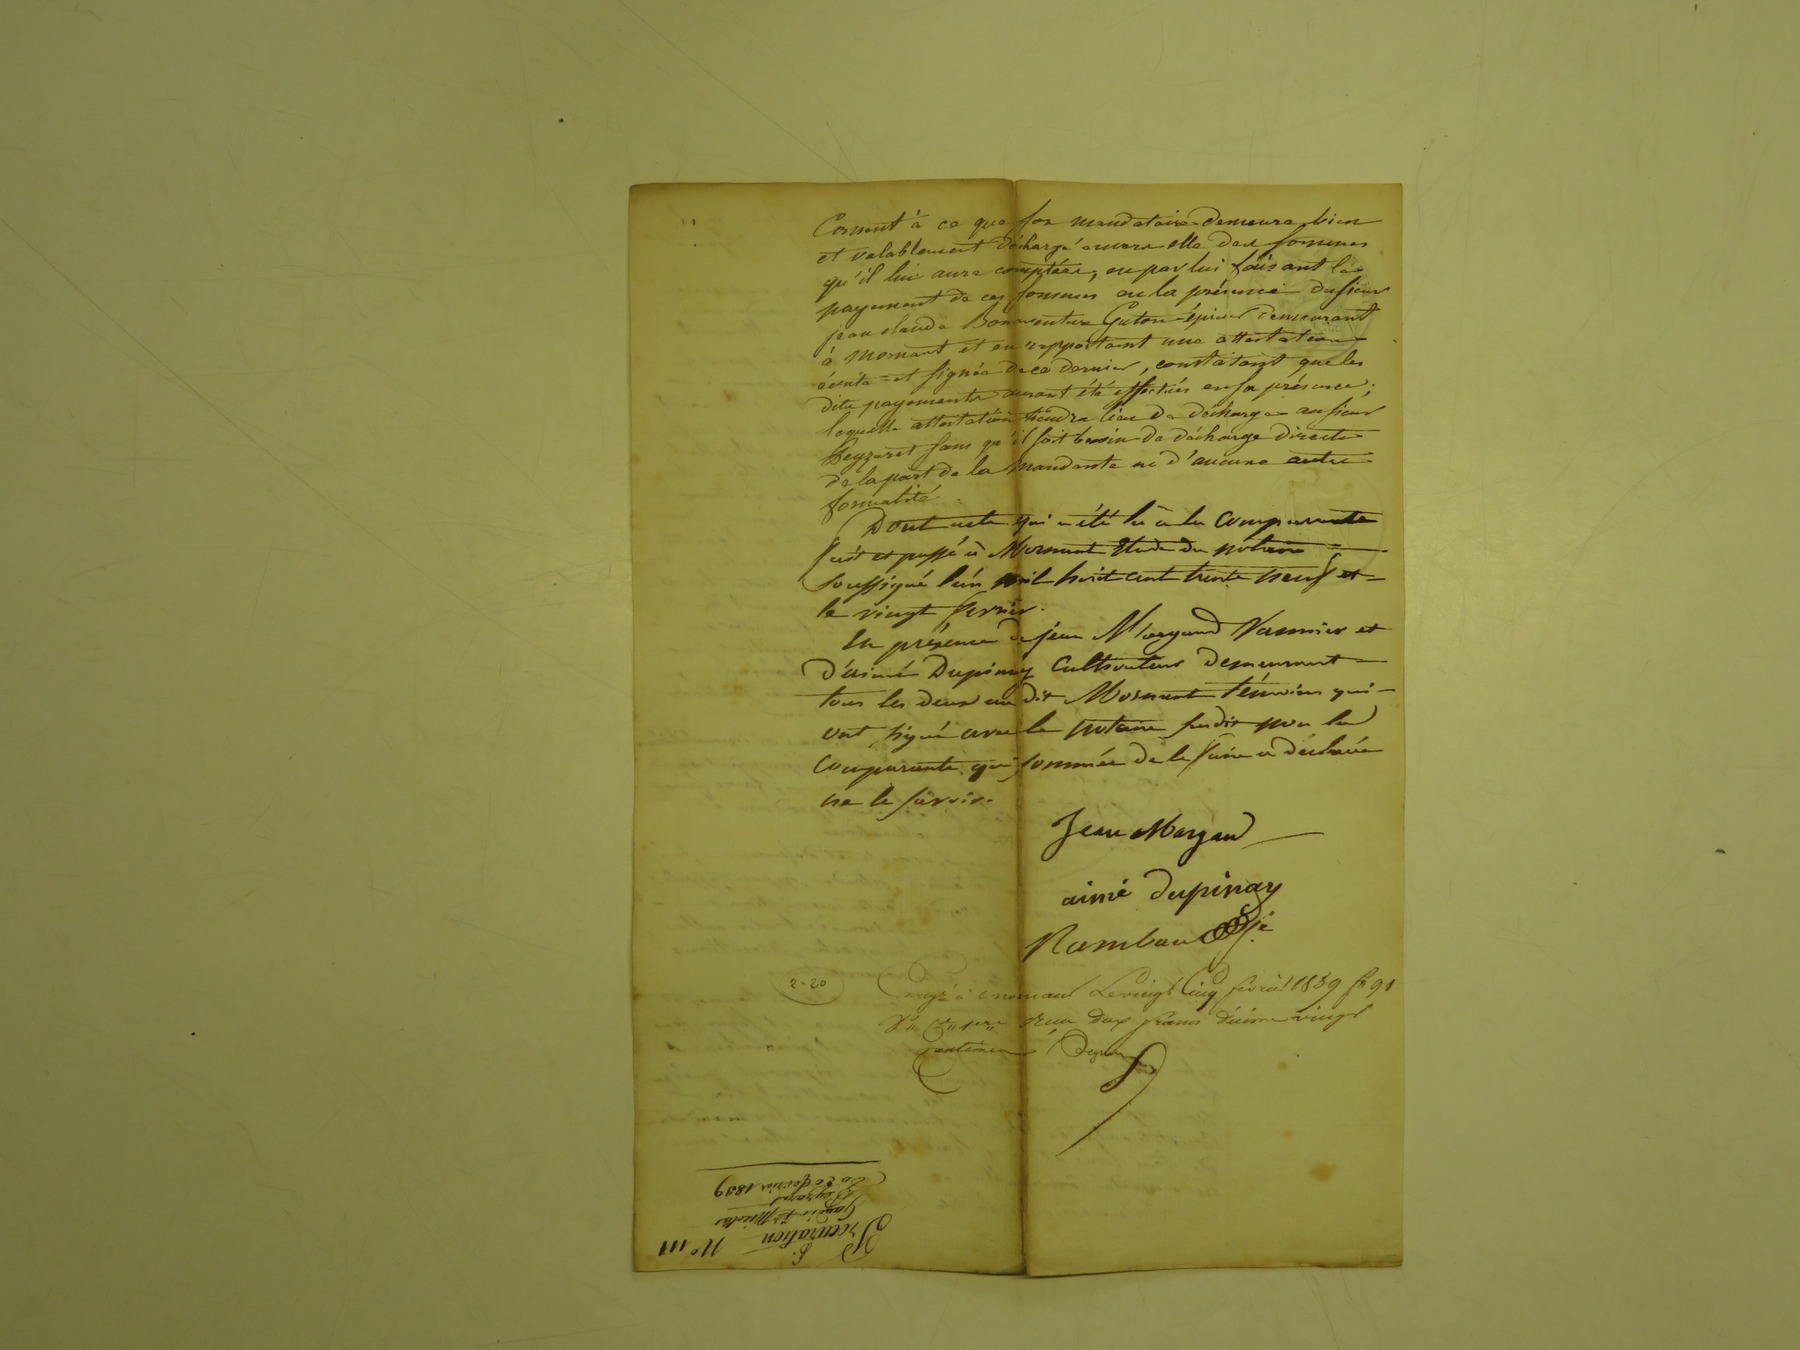 Consent à ce que son mandataire demeure bien
et valablement déchargé envers elle des sommes
qu'il lui aura comptées, ou par lui faisant les
payement de ces sommes en la présence du sieur
jean claude Bonaventure Guton épicier demeurant
à Mornant et en rapportant une attestation
écrite et signée de ce dernier, constatant que les
dits payements auront été effectués en sa présence;
laquelle attestation tiendra lieu de décharge au sieur
Peyzaret sans qu'il soit besoin de décharge directe
de la part de la mandante ni d'aucune autre
formalité.
Dont acte qui a été lu à la Comparante
fait et passé à Mornant Etude du notaire
soussigné l'an mil huit cent trente neuf et
le vingt fevrier.
En présence de jean Margand Vannier et
d'aimé Dupinay Cultivateur demeurant
tous les deux au dit Mornant témoins qui
ont signé avec le notaire susdit non la
Comparante qui sommée de le faire a déclarée
ne le savoir.
Jean Margand
aimé dupinay
Rambau
2-20
à mornant Le vingt Cinq fevrier 1839 f° 91
reçu deux francs décime vingt
centimes
N° 111
Procuration
Le 20 fevrier 1839